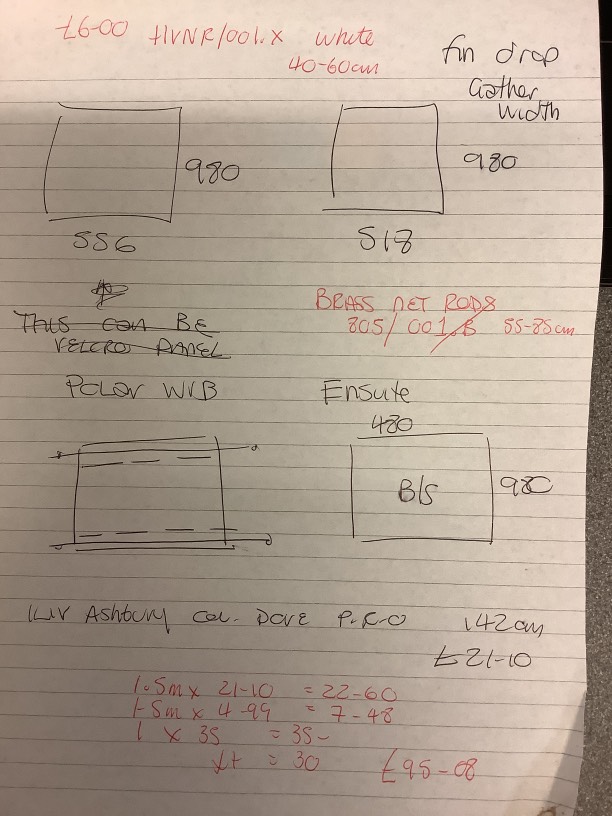 £6-00 HVNR/001.X white
40-60cm
fin drop
Gather
width
980
980
556
518
THIS can BE
VELCRO PANEL
BRASS NET RODS
805/001.B 55-85cm
Ensuite
480
980
Ashbury Col. DOVE P.K.O 142cm
£21-10
1.5m x 21-10 = 22-60
1-5m x 4-99 = 7-48
1 x 35 = 35-
= 30 £95-08